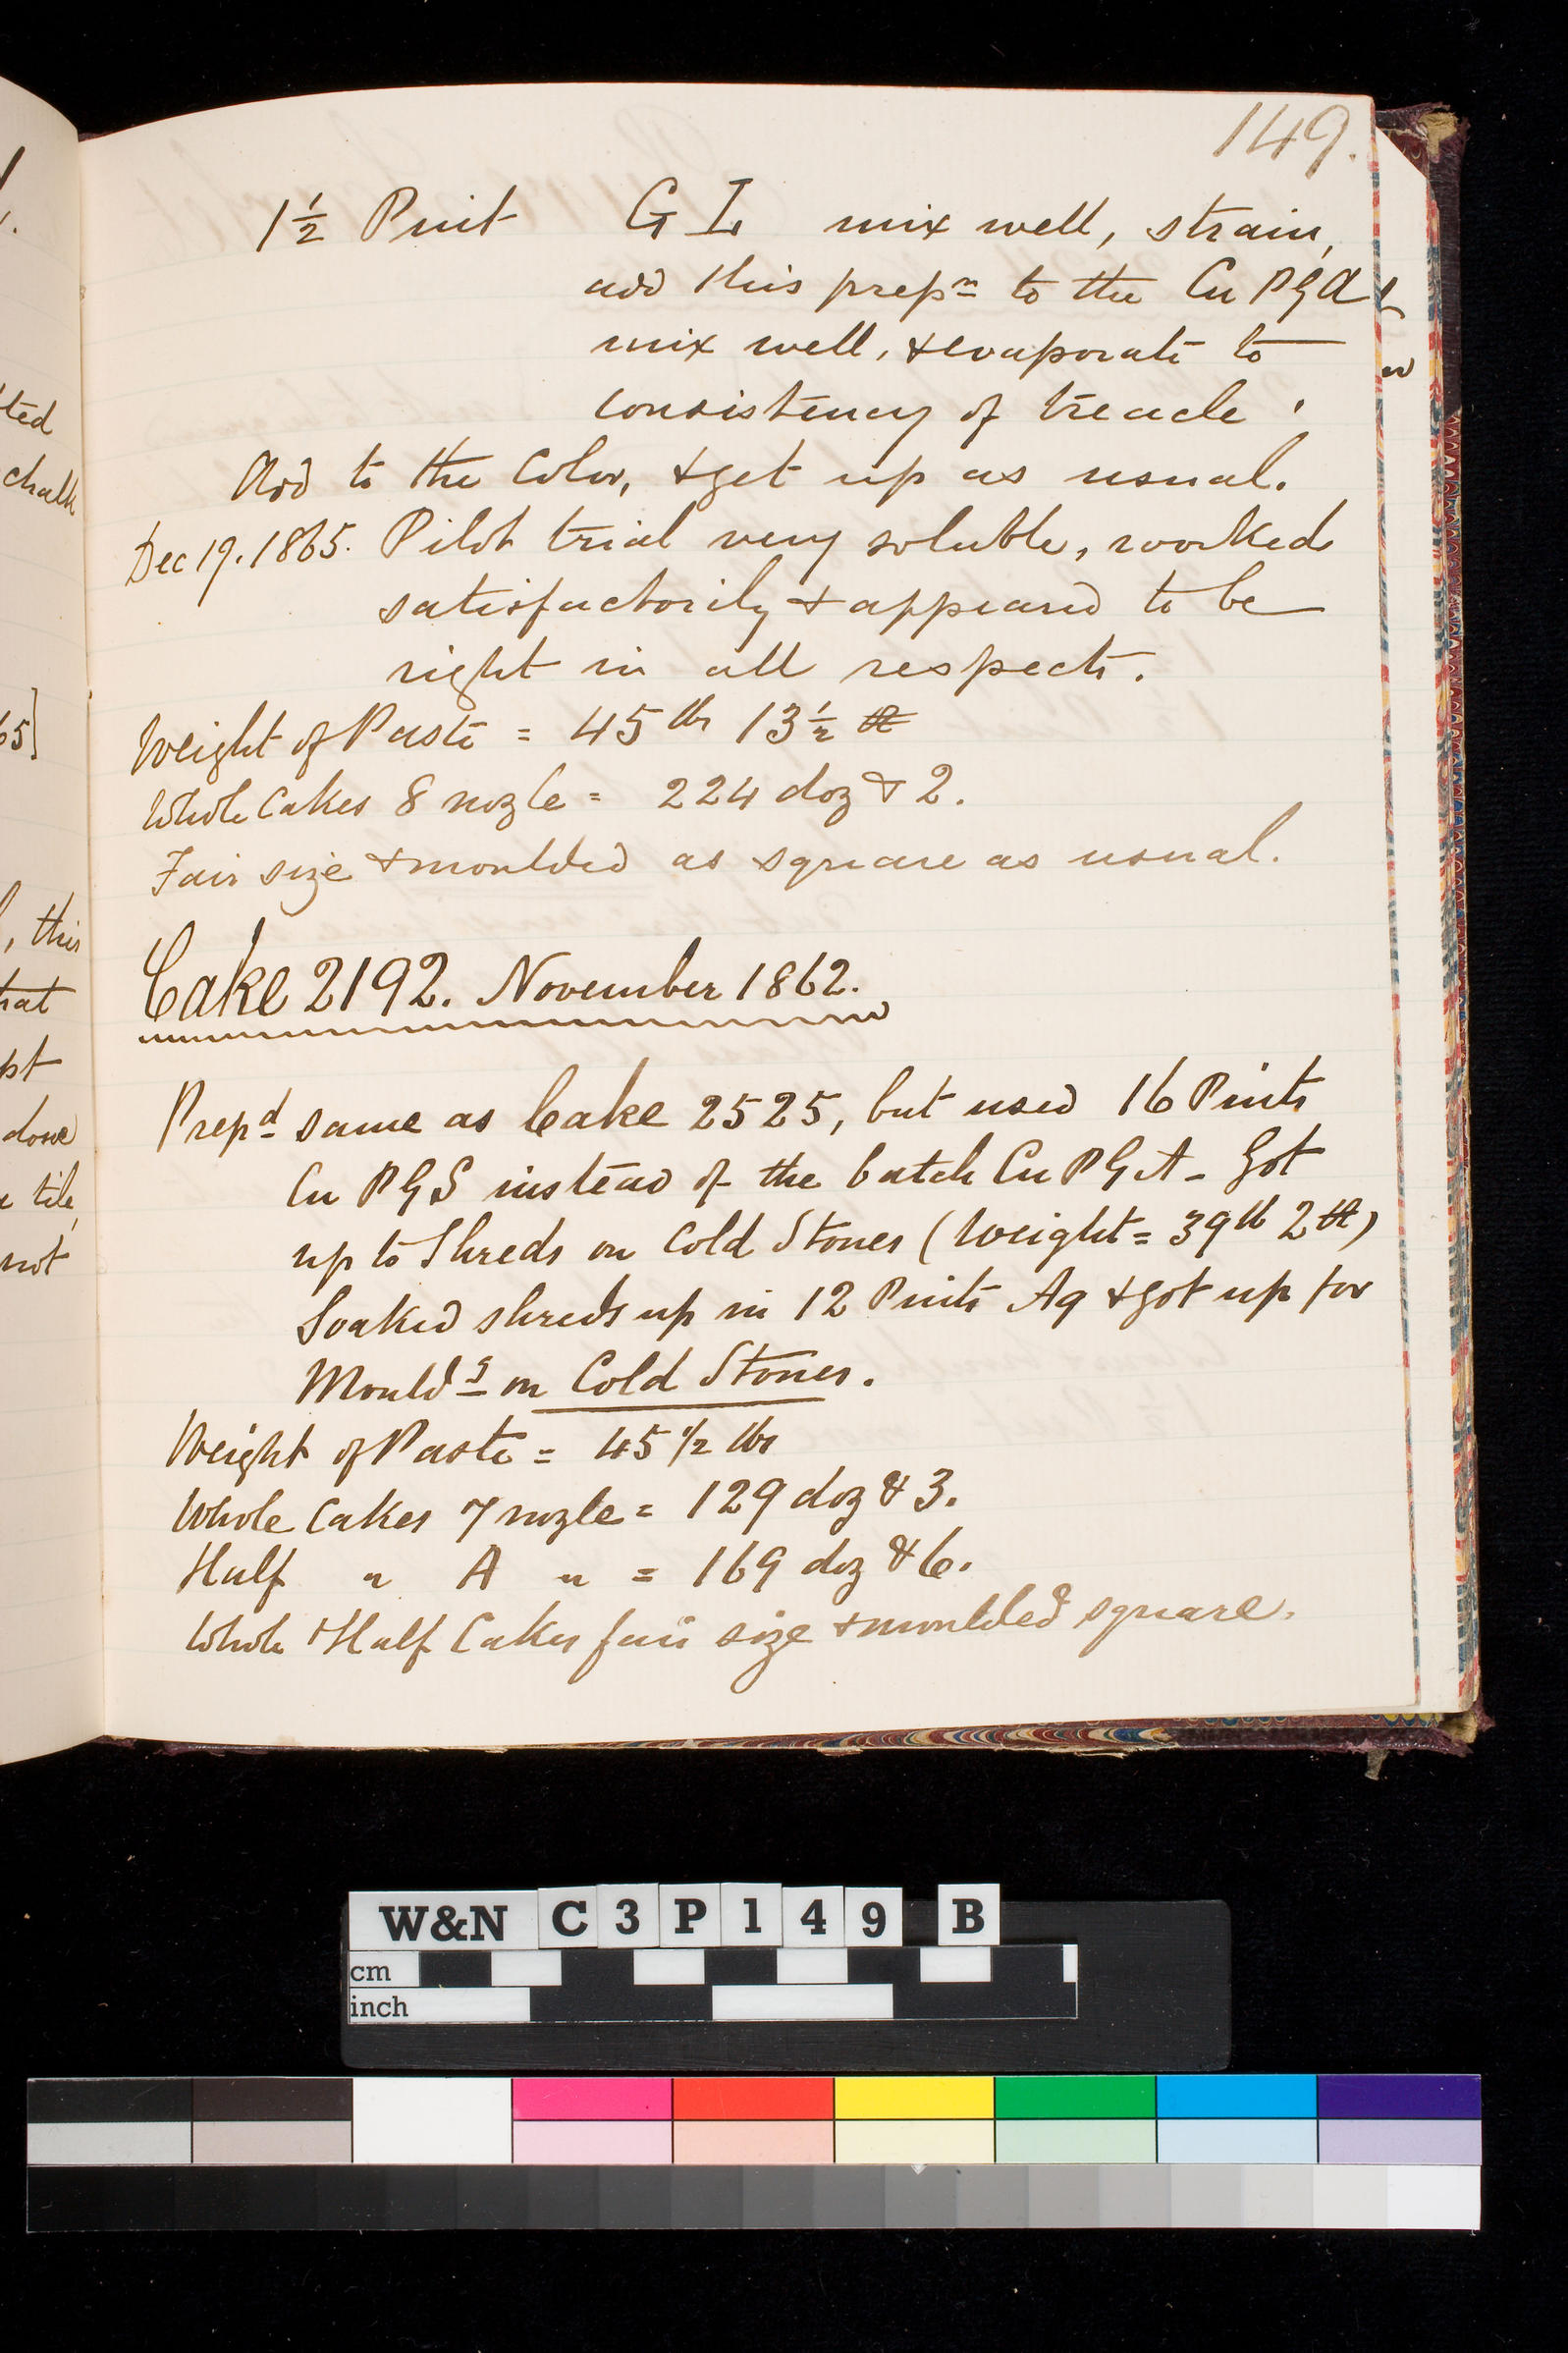 149.
1½ Pint G L mix well, strain,
add this prepⁿ to the Cu P G A
mix well, & evaporate to
consistency of treacle.
Add to the Color, & get up as usual.
Dec 19. 1865. Pilot trial very soluble, worked
satisfactorily & appeared to be
right in all respects.
Weight of Paste = 45 lbs 13½
Whole Cakes 8 nozle = 224 doz & 2.
Fair size & moulded as square as usual.
Cake 2192. November 1862.
Prepᵈ same as Cake 2525, but used 16 Pints
Cu P G S instead of the batch Cu P G A - Got
up to Shreds on Cold Stones (Weight = 39 lb 2
Soaked shreds up in 12 Pints Aq & got up for
Mouldᵍ on Cold Stones.
Weight of Paste = 45 1/2 lbs
Whole Cakes 7 nozle = 129 doz & 3.
Half " A " = 169 doz & 6.
Whole & Half Cakes fair size & moulded square.
ted
chalk
65]
, this
that
done
tile,
not
W&N C 3 P 1 4 9 B
cm
inch